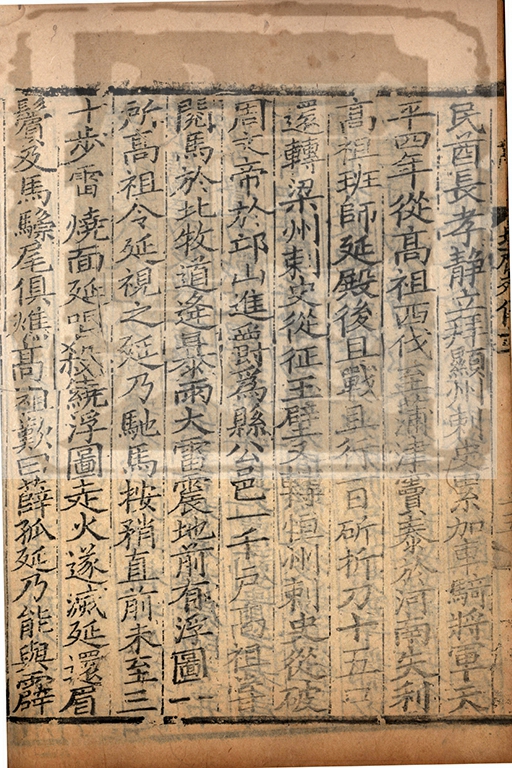 民酋長孝靜立拜顯州刺史累加車騎將軍天
平四年從高祖西伐至蒲津竇泰於河南失利
高祖班師延殿後且戰且行一日斫折刀十五口
還轉梁州刺史從征玉壁又轉恒州刺史從破
周文帝於邙山進爵爲縣公邑一千戶高祖嘗
閱馬於北牧道逢暴雨大雷震地前有浮圖一
所高祖令延視之延乃馳馬按矟直前未至三
十步雷燒面延唱殺繞浮圖走火遂滅延還眉
鬢及馬騣尾俱燋高祖歎曰薛孤延乃能與霹